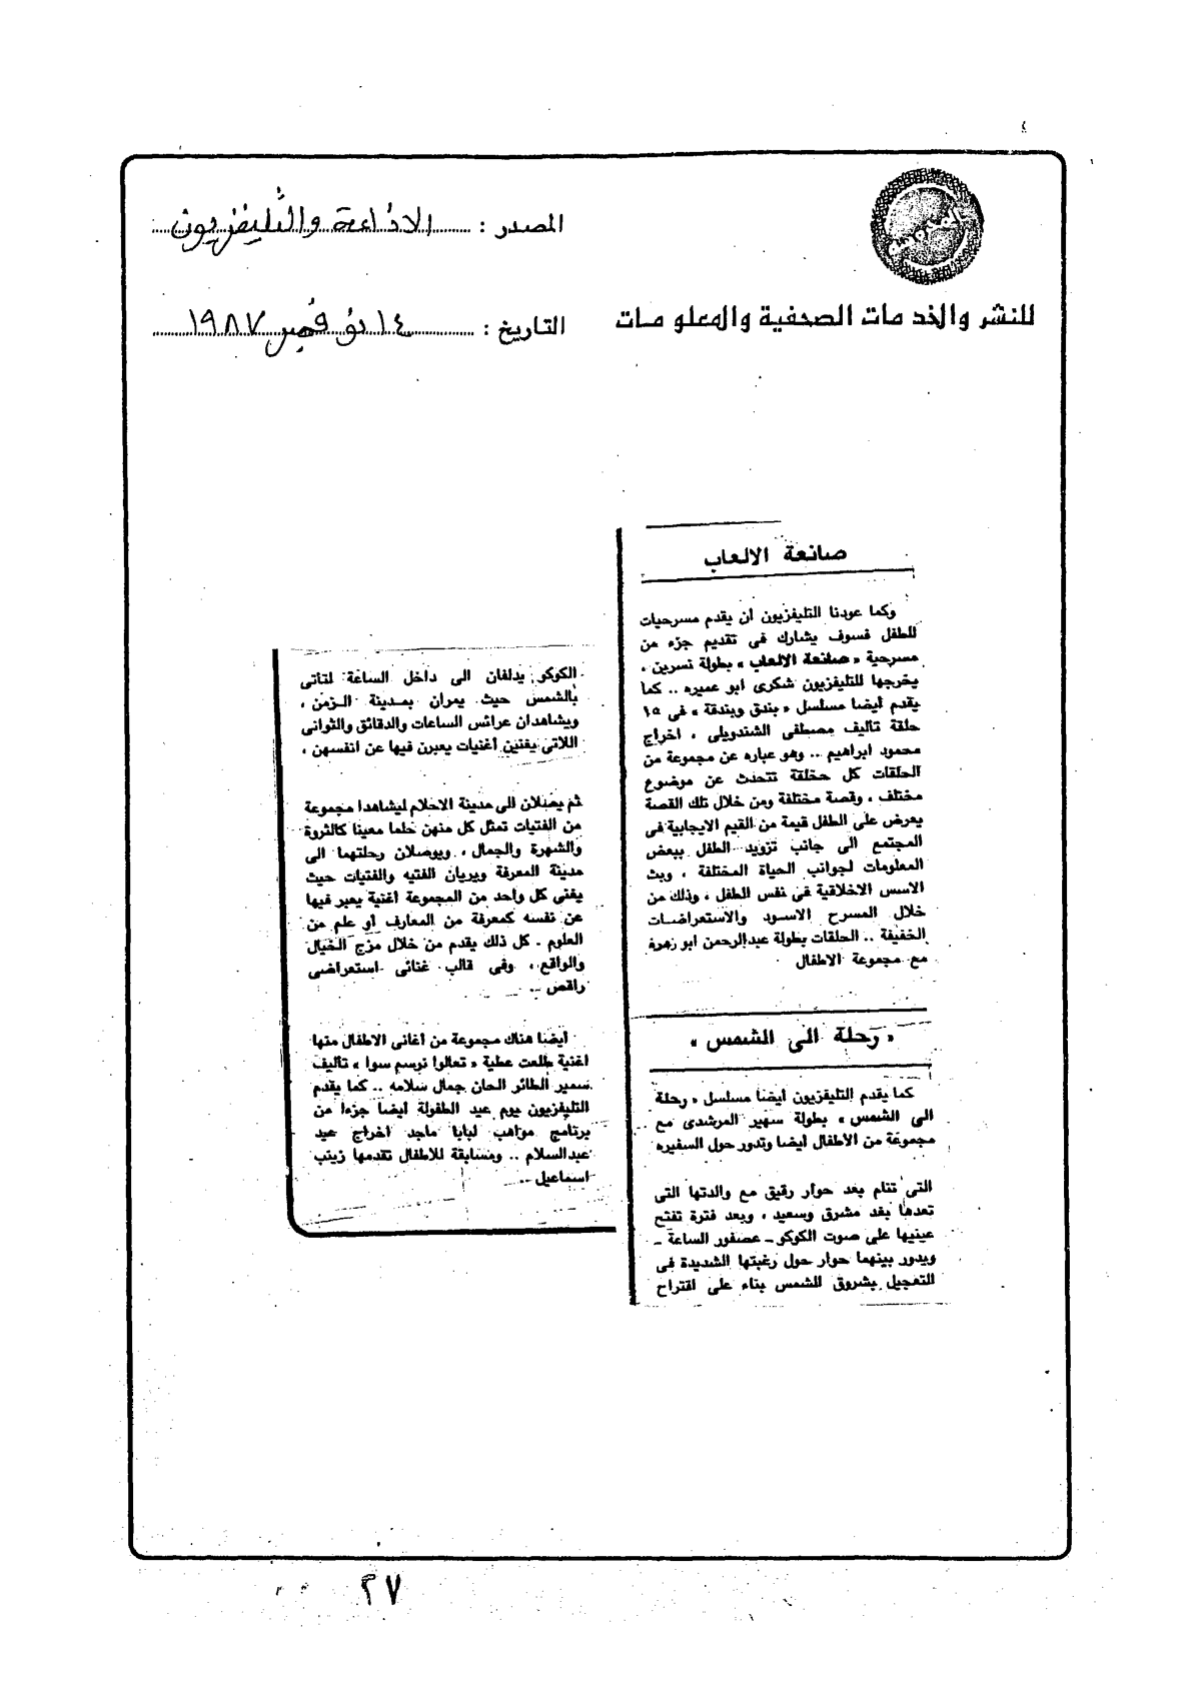 المصدر : الاذاعة والتليفزيون
للنشر والخدمات الصحفية والمعلومات
التاريخ : ١٤ نوفمبر ١٩٨٧
صانعة الالعاب
وكما عودنا التليفزيون ان يقدم مسرحيات
للطفل فسوف يشارك فى تقديم جزء من
مسرحية « صانعة الالعاب » بطولة نسرين ،
يخرجها للتليفزيون شكرى ابو عميره .. كما
يقدم أيضا مسلسل « بندق وبندقة » فى ١٥
حلقة تأليف مصطفى الشندويلى ، اخراج
محمود ابراهيم .. وهو عباره عن مجموعة من
الحلقات كل حلقة تتحدث عن موضوع
مختلف ، وقصة مختلفة ومن خلال تلك القصة
يعرض على الطفل قيمة من القيم الايجابية فى
المجتمع الى جانب تزويد الطفل ببعض
المعلومات لجوانب الحياة المختلفة ، وبث
الاسس الاخلاقية فى نفس الطفل ، وذلك من
خلال المسرح الاسود والاستعراضات
الخفيفة .. الحلقات بطولة عبدالرحمن ابو زهرة
مع مجموعة الاطفال
« رحلة الى الشمس »
كما يقدم التليفزيون أيضا مسلسل « رحلة
الى الشمس » بطولة سهير المرشدى مع
مجموعة من الأطفال ايضا وتدور حول السفيره
التى تنام بعد حوار رقيق مع والدتها التى
تعدها بغد مشرق وسعيد ، وبعد فترة تفتح
عينيها على صوت الكوكو - عصفور الساعة -
ويدور بينهما حوار حول رغبتها الشديدة فى
التعجيل بشروق الشمس بناء على اقتراح
الكوكو يدلفان الى داخل الساعة لتأتى
بالشمس حيث يمران بمدينة الزمن ،
ويشاهدان عرائس الساعات والدقائق والثوانى
اللاتى يغنين اغنيات يعبرن فيها عن انفسهن ،
ثم يصلان الى مدينة الاحلام ليشاهدا مجموعة
من الفتيات تمثل كل منهن حلما معينا كالثروة
والشهرة والجمال ، ويوصلان رحلتهما الى
مدينة المعرفة ويريان الفتيه والفتيات حيث
يغنى كل واحد من المجموعة اغنية يعبر فيها
عن نفسه كمعرفة من المعارف أو علم من
العلوم . كل ذلك يقدم من خلال مزج الخيال
والواقع ، وفى قالب غنائى استعراضى
راقص ..
ايضا هناك مجموعة من اغانى الاطفال منها
اغنية طلعت عطية « تعالوا نرسم سوا » تأليف
سمير الطائر الحان جمال سلامه .. كما يقدم
التليفزيون يوم عيد الطفولة ايضا جزءا من
برنامج مواهب لبابا ماجد اخراج عيد
عبدالسلام .. ومسابقة للاطفال تقدمها زينب
اسماعيل ..
٢٧